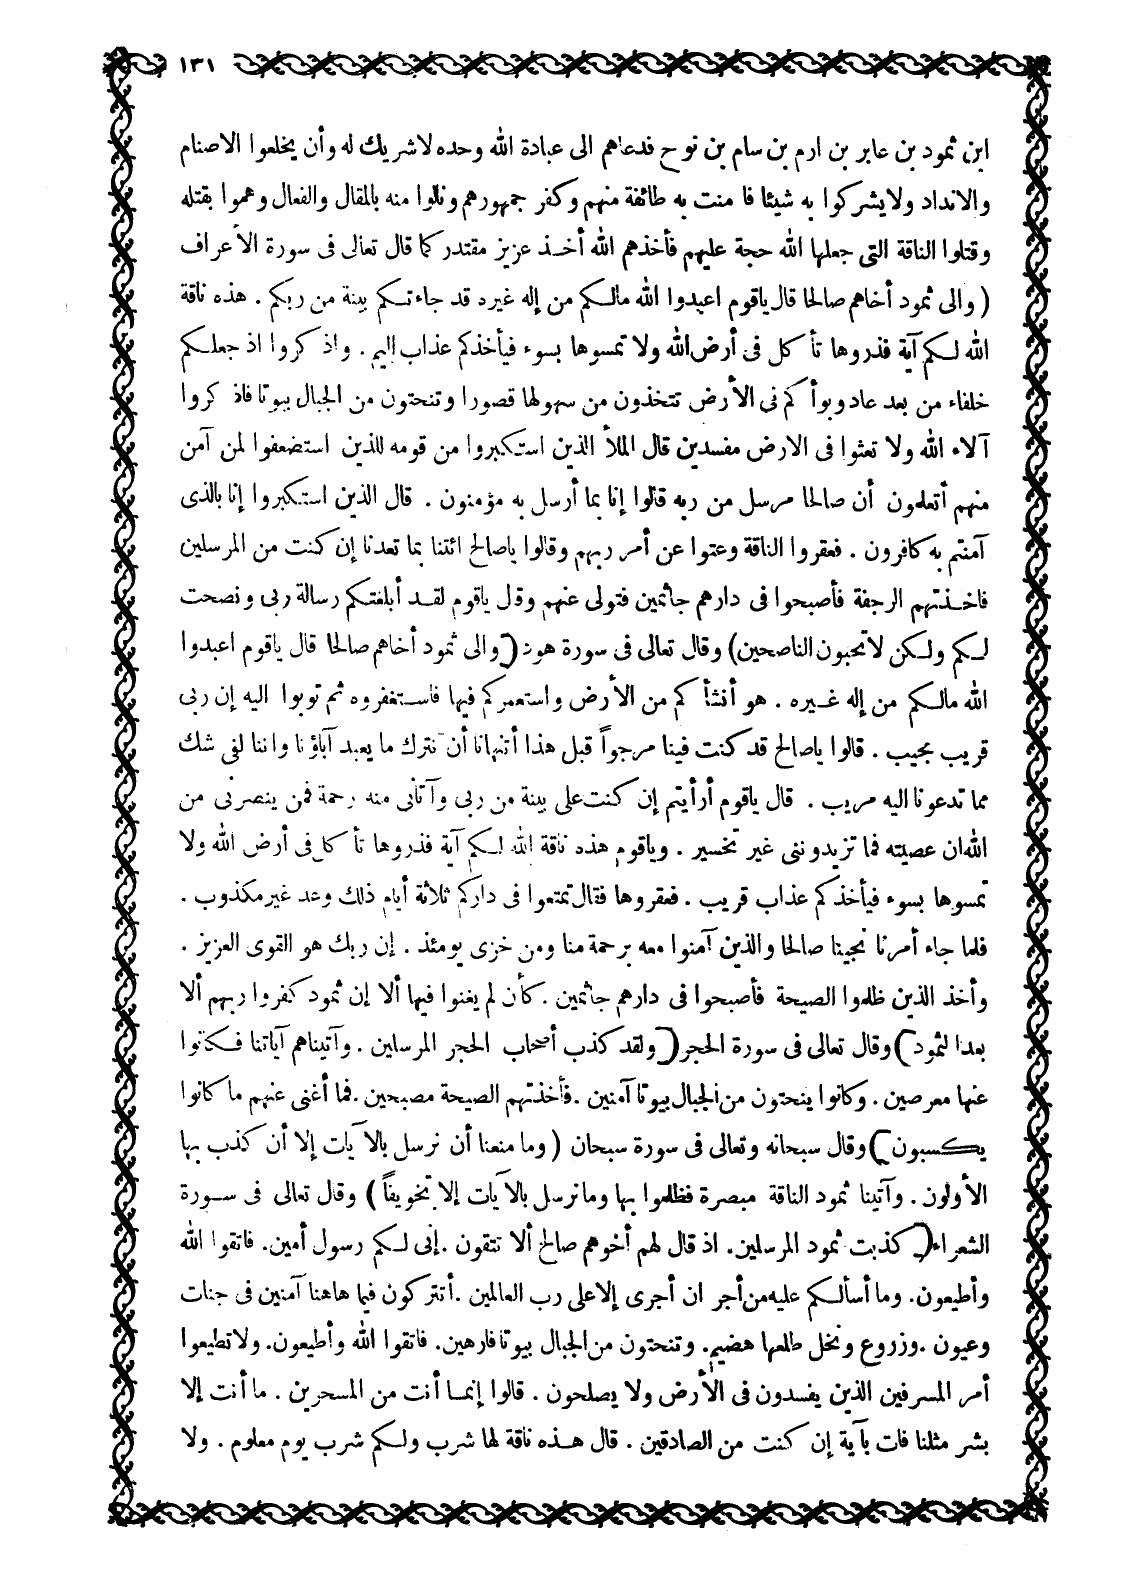 ١٣١
ابن ثمود بن عابر بن ارم بن سام بن نوح فدعاهم الى عبادة الله وحده لا شريك له وأن يخلعوا الاصنام
والانداد ولا يشركوا به شيئا فا منت به طائفة منهم وكفر جمهورهم ونالوا منه بالمقال والفعال وهموا بقتله
وقتلوا الناقة التى جعلها الله حجة عليهم فأخذهم الله أخذ عزيز مقتدر كما قال تعالى فى سورة الأعراف
( والى ثمود أخاهم صالحا قال ياقوم اعبدوا الله مالكم من إله غيره قد جاءتكم بينة من ربكم . هذه ناقة
الله لكم آية فذروها تأكل فى أرض الله ولا تمسوها بسوء فيأخذكم عذاب اليم . واذكروا اذ جعلكم
خلفاء من بعد عاد وبوأكم فى الأرض تتخذون من سهولها قصورا وتنحتون من الجبال بيوتا فاذكروا
آلاء الله ولا تعثوا فى الارض مفسدين قال الملأ الذين استكبروا من قومه للذين استضعفوا لمن آمن
منهم أتعلمون أن صالحا مرسل من ربه قالوا إنا بما أرسل به مؤمنون . قال الذين استكبروا إنا بالذى
آمنتم به كافرون . فعقروا الناقة وعتوا عن أمر ربهم وقالوا ياصالح ائتنا بما تعدنا إن كنت من المرسلين
فاخذتهم الرجفة فأصبحوا فى دارهم جاثمين فتولى عنهم وقال ياقوم لقد أبلغتكم رسالة ربى ونصحت
لكم ولكن لا تحبون الناصحين) وقال تعالى فى سورة هود (والى ثمود أخاهم صالحا قال ياقوم اعبدوا
الله مالكم من إله غيره . هو أنشأكم من الأرض واستعمركم فيها فاستغفروه ثم توبوا اليه إن ربى
قريب مجيب . قالوا ياصالح قد كنت فينا مرجواً قبل هذا أتنهانا أن نترك ما يعبد آباؤنا واننا لفى شك
مما تدعونا اليه مريب . قال ياقوم أرأيتم إن كنت على بينة من ربى وآتانى منه رحمة فمن ينصرنى من
الله ان عصيته فما تزيدوننى غير تخسير . وياقوم هذه ناقة الله لكم آية فذروها تأكل فى أرض الله ولا
تمسوها بسوء فيأخذكم عذاب قريب . فعقروها فقال تمتعوا فى داركم ثلاثة أيام ذلك وعد غير مكذوب .
فلما جاء أمرنا نجينا صالحا والذين آمنوا معه برحمة منا ومن خزى يومئذ . إن ربك هو القوى العزيز .
وأخذ الذين ظلموا الصيحة فأصبحوا فى دارهم جاثمين . كأن لم يغنوا فيها ألا إن ثمود كفروا ربهم ألا
بعدا لثمود) وقال تعالى فى سورة الحجر (ولقد كذب أصحاب الحجر المرسلين . وآتيناهم آياتنا فكانوا
عنها معرضين . وكانوا ينحتون من الجبال بيوتا آمنين . فأخذتهم الصيحة مصبحين . فما أغنى عنهم ما كانوا
يكسبون) وقال سبحانه وتعالى فى سورة سبحان ( وما منعنا أن نرسل بالآيات إلا أن كذب بها
الأولون . وآتينا ثمود الناقة مبصرة فظلموا بها وما نرسل بالآيات إلا تخويفاً ) وقال تعالى فى سورة
الشعراء (كذبت ثمود المرسلين . اذ قال لهم أخوهم صالح ألا تتقون . إنى لكم رسول أمين . فاتقوا الله
وأطيعون . وما أسألكم عليه من أجر ان أجرى إلا على رب العالمين . أتتركون فيما هاهنا آمنين فى جنات
وعيون . وزروع ونخل طلعها هضيم . وتنحتون من الجبال بيوتا فارهين . فاتقوا الله وأطيعون . ولا تطيعوا
أمر المسرفين الذين يفسدون فى الأرض ولا يصلحون . قالوا إنما أنت من المسحرين . ما أنت إلا
بشر مثلنا فات بآية إن كنت من الصادقين . قال هذه ناقة لها شرب ولكم شرب يوم معلوم . ولا